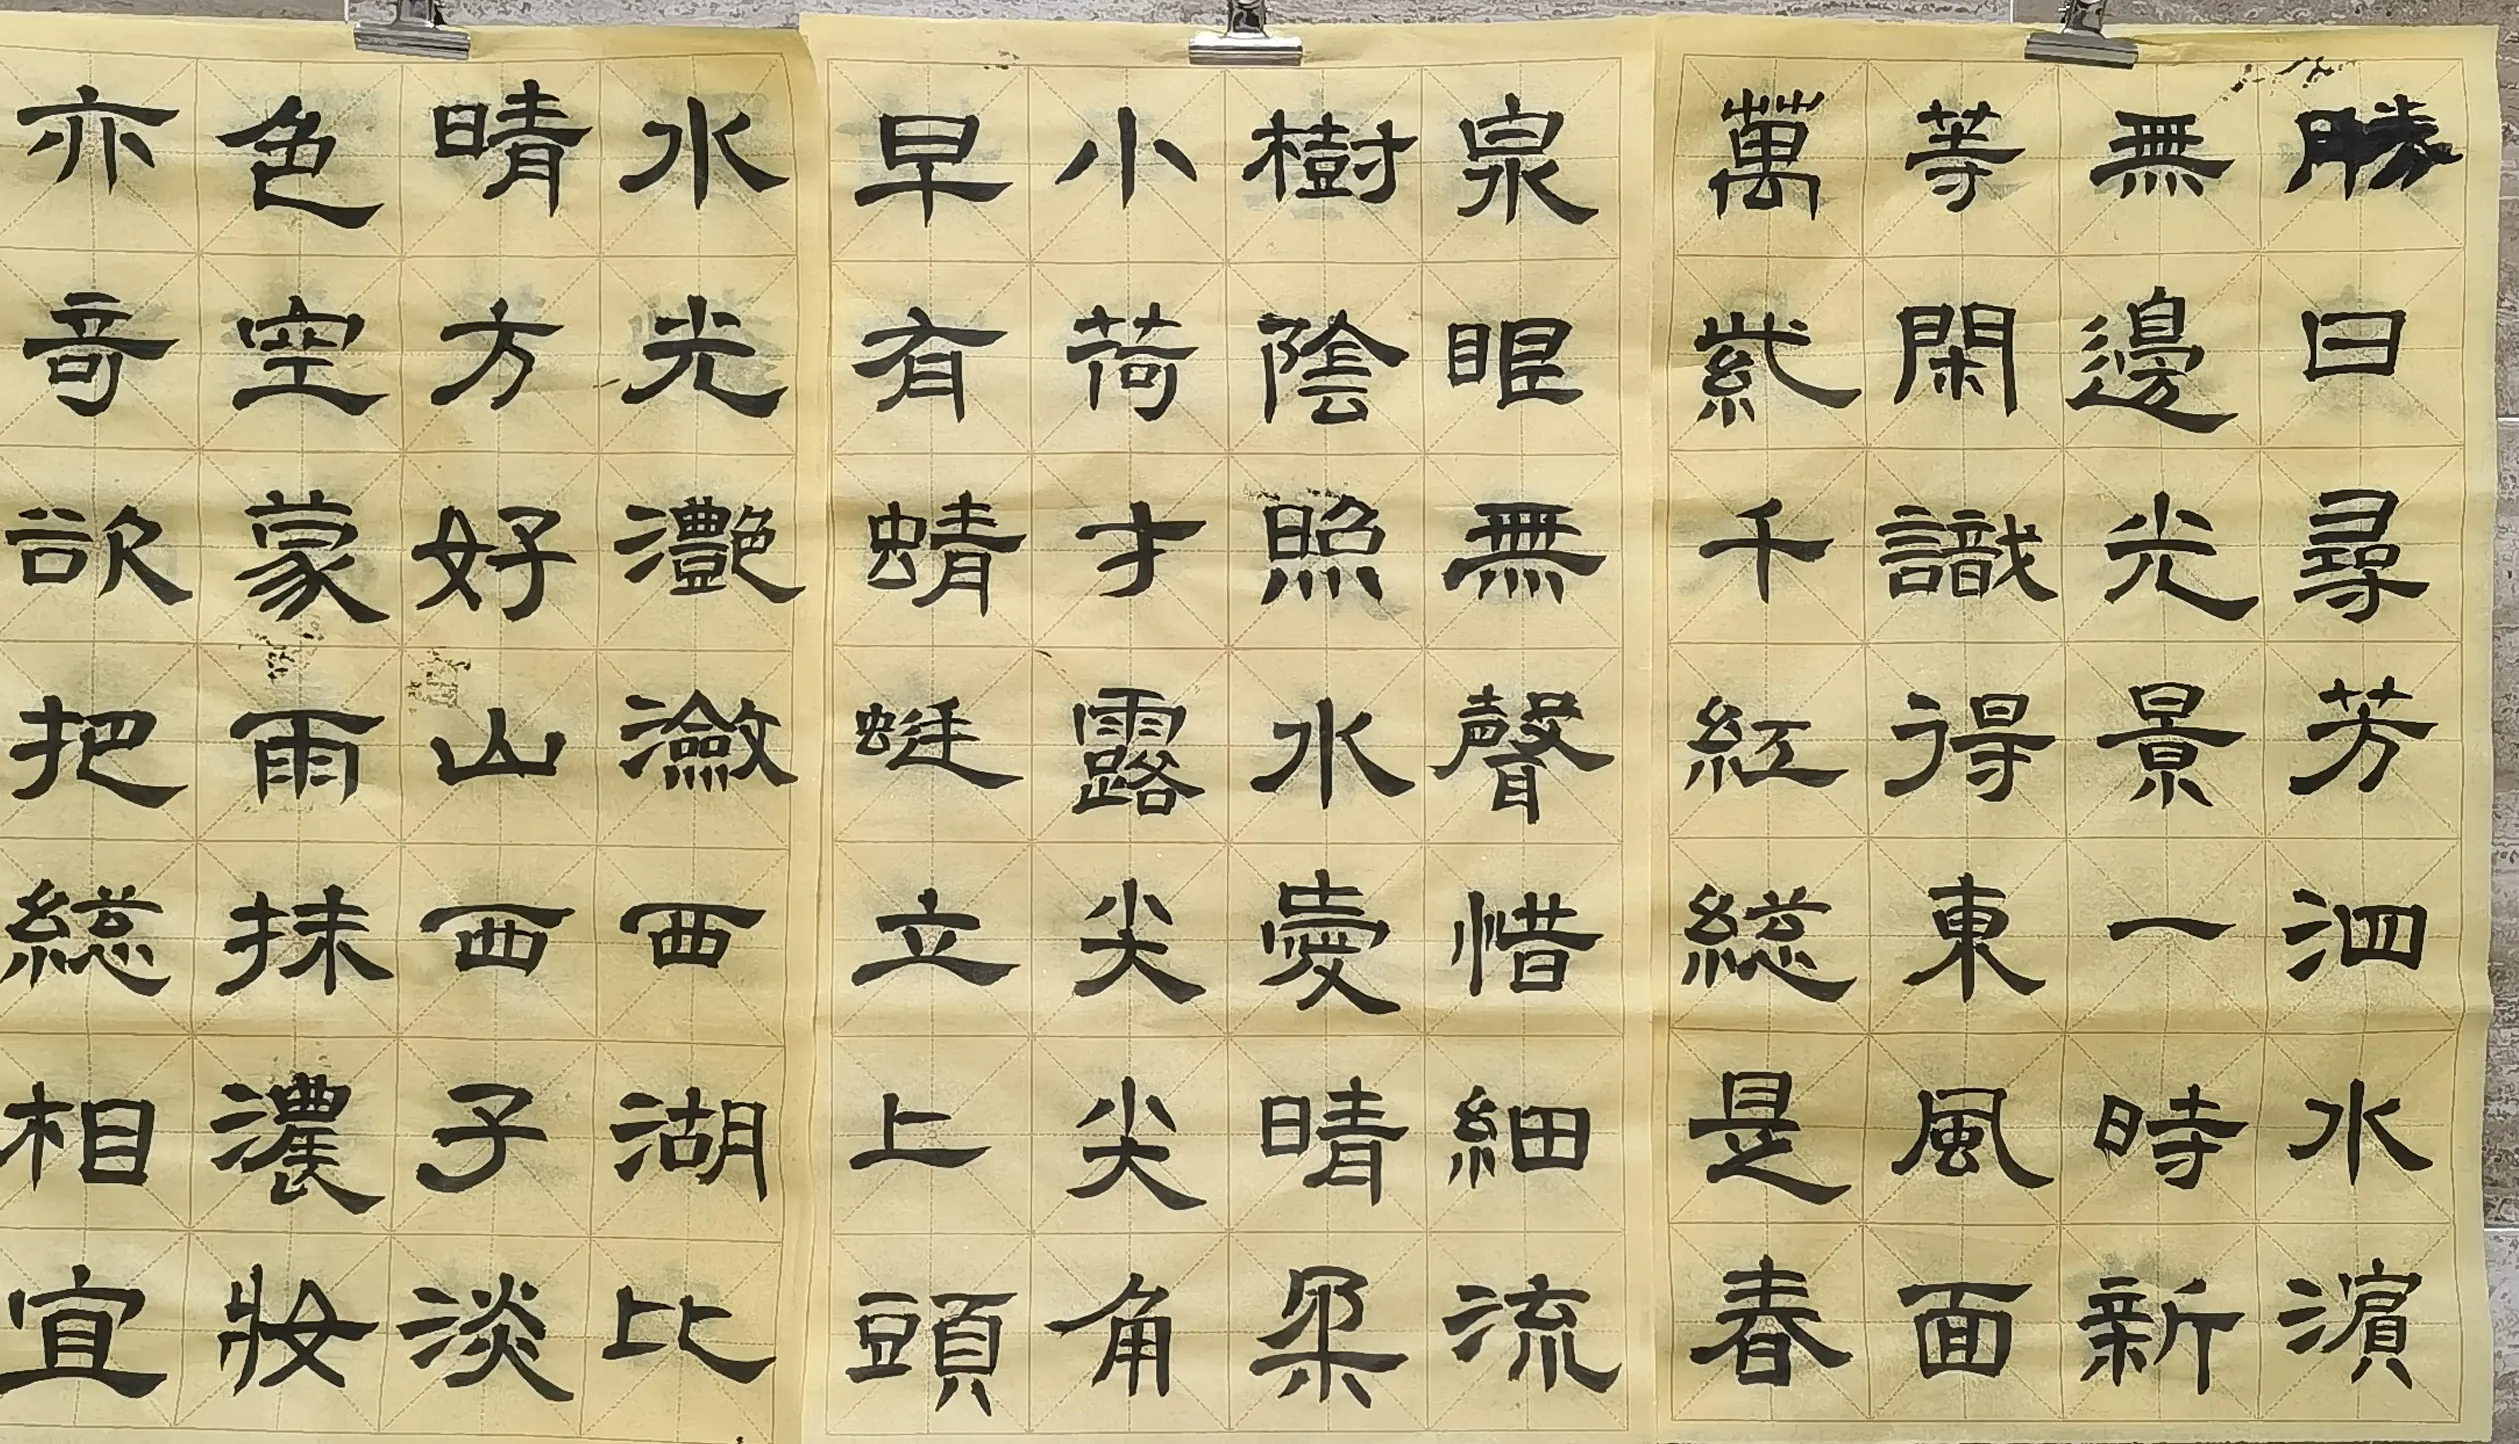 勝日尋芳泗水濱
無邊光景一時新
等閑識得東風面
萬紫千紅総是春
泉眼無聲惜細流
樹陰照水愛晴柔
小荷才露尖尖角
早有蜻蜓立上頭
水光灧瀲西湖比
晴方好山西子淡
色空蒙雨抹濃妝
亦奇欲把総相宜